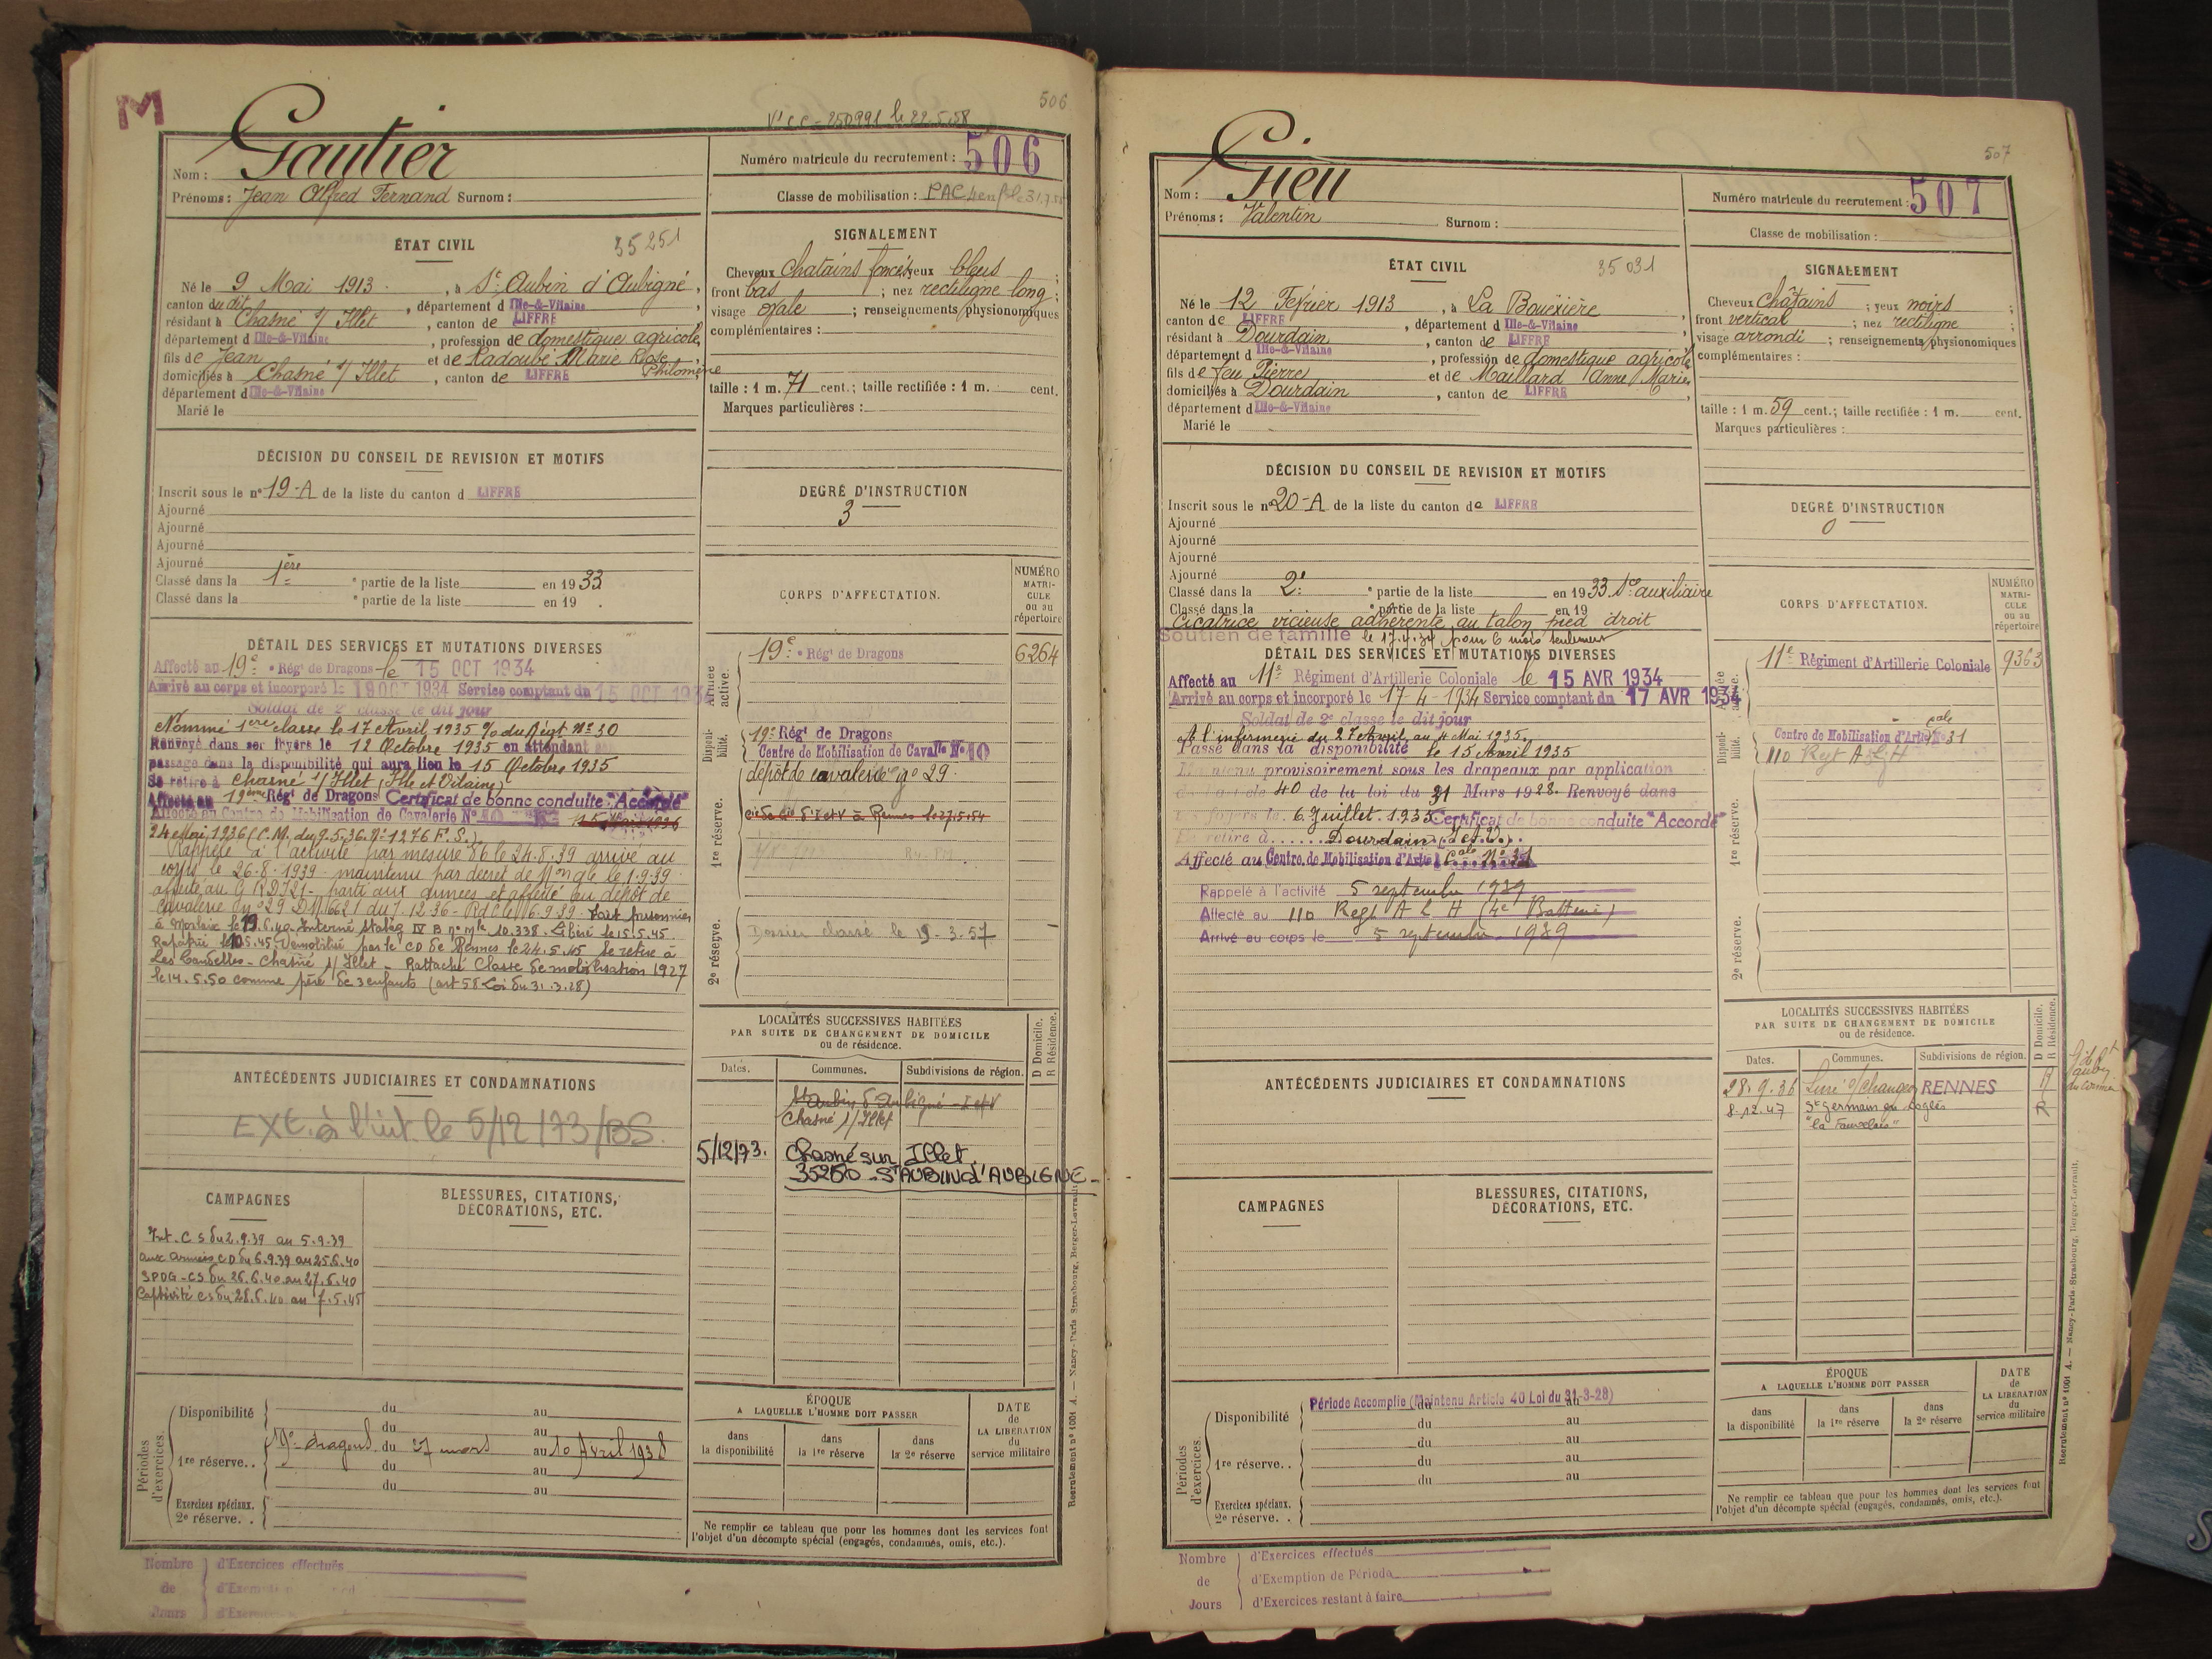 M
506
Vt CC - 250991 le 22.5.58
Nom : Gautier
Prénoms : Jean Alfred Fernand Surnom :
Numéro matricule du recrutement : 506
Classe de mobilisation : PAC
ÉTAT CIVIL
35251
Né le 9 Mai 1913, à St Aubin d'Aubigné,
canton du dit, département d Ille-&-Vilaine
résidant à Chasné s/ Illet, canton de LIFFRÉ
département d Ille-&-Vilaine, profession de domestique agricole,
fils de Jean et de Ladoubé Marie Rose Philomène,
domiciliés à Chasné s/ Illet, canton de LIFFRÉ
département d Ille-&-Vilaine
Marié le
SIGNALEMENT
Cheveux chatains foncés yeux bleus ;
front bas ; nez rectiligne long ;
visage ovale ; renseignements physionomiques
complémentaires :
taille : 1 m. 71 cent. ; taille rectifiée : 1 m. cent.
Marques particulières :
DÉCISION DU CONSEIL DE REVISION ET MOTIFS
Inscrit sous le n° 19-A de la liste du canton d LIFFRÉ
Ajourné
Ajourné
Ajourné
Ajourné
Classé dans la 1ère partie de la liste en 1933
Classé dans la e partie de la liste en 19 .
DEGRÉ D'INSTRUCTION
3
DÉTAIL DES SERVICES ET MUTATIONS DIVERSES
Affecté au 19e Régt de Dragons le 15 OCT 1934
Arrivé au corps et incorporé le 19 OCT 1934 Service comptant du 15 OCT 1934
Soldat de 2e classe le dit jour
Nommé 1ère classe le 17 Avril 1935 % du Régt N° 30
Renvoyé dans ses foyers le 12 Octobre 1935 en attendant
passage dans la disponibilité qui aura lieu le 15 Octobre 1935
Se retire à Chasné s/ Illet (Ille et Vilaine)
Affecté au 19ème Régt de Dragons Certificat de bonne conduite "Accordé"
Affecté au Centre de Mobilisation de Cavalerie N° 10
24 Mai 1936 (C.M. du 9.5.36. N° 1276 F.S.)
Rappelé à l'activité par mesure 86 le 24.8.39 arrivé au
corps le 26.8.1939 maintenu par décret de Mon gle le 1.9.39
affecté au G R D I 21 - parti aux armées et affecté au dépôt de
cavalerie n° 29 DM 6621 du 7.12.36 - RdC le 16.9.39. Fait prisonnier
à Morlaix le 19.6.40 Interné Stalag IV B n° mle 10.338. Libéré le 15.5.45.
Rapatrié le 10.5.45 Démobilisé par le CD de Rennes le 24.5.45 Se retire à
Chasné s/ Illet - Rattaché Classe de mobilisation 1927
le 14.5.50 comme père de 3 enfants (art 58 Loi du 31.3.28)
CORPS D'AFFECTATION.
NUMÉRO MATRICULE ou au répertoire
Armée active.
19e Régt de Dragons 6264
Disponibilité.
19e Régt de Dragons
Centre de Mobilisation de Cavalle N° 10
dépôt de cavalerie n° 29
1re réserve.
2e réserve.
Dossier classé le 19.3.57
ANTÉCÉDENTS JUDICIAIRES ET CONDAMNATIONS
EXt. à l'uit le 5/12/73/BS.
LOCALITÉS SUCCESSIVES HABITÉES
PAR SUITE DE CHANGEMENT DE DOMICILE
ou de résidence.
D Domicile.
R Résidence.
Dates. Communes. Subdivisions de région.
St Aubin d'Aubigné - I et V
Chasné s/ Illet
5/12/73. Chasné sur Illet.
35250 - St AUBIN d'AUBIGNE -
CAMPAGNES
Int. C S du 2.9.39 au 5.9.39
aux armées CD du 6.9.39 au 25.6.40
SPDG - CS du 26.6.40 au 27.6.40
Captivité CS du 28.6.40 au 7.5.45
BLESSURES, CITATIONS,
DÉCORATIONS, ETC.
Périodes d'exercices.
Disponibilité du au
du au
1re réserve.. 19e dragons. du 27 mars au 10 Avril 1938
du au
du au
Exercices spéciaux.
2e réserve. .
ÉPOQUE
A LAQUELLE L'HOMME DOIT PASSER
dans la disponibilité
dans la 1re réserve
dans la 2e réserve
DATE de LA LIBÉRATION du service militaire
Ne remplir ce tableau que pour les hommes dont les services font
l'objet d'un décompte spécial (engagés, condamnés, omis, etc.).
Recrutement n° 1001 A. — Nancy-Paris-Strasbourg, Berger-Levrault.
Nombre de Jours
d'Exercices effectués
507
Nom : Gieu
Prénoms : Valentin Surnom :
Numéro matricule du recrutement : 507
Classe de mobilisation :
ÉTAT CIVIL
35031
Né le 12 Février 1913, à La Bouëxière
canton de LIFFRÉ, département d Ille-&-Vilaine
résidant à Dourdain, canton de LIFFRÉ
département d Ille-&-Vilaine, profession de domestique agricole
fils de feu Pierre et de Maillard Anne Marie,
domiciliés à Dourdain, canton de LIFFRÉ
département d Ille-&-Vilaine
Marié le
SIGNALEMENT
Cheveux châtains ; yeux noirs
front vertical ; nez rectiligne ;
visage arrondi ; renseignements physionomiques
complémentaires :
taille : 1 m. 59 cent. ; taille rectifiée : 1 m. cent.
Marques particulières :
DÉCISION DU CONSEIL DE REVISION ET MOTIFS
Inscrit sous le n° 20-A de la liste du canton de LIFFRÉ
Ajourné
Ajourné
Ajourné
Ajourné
Classé dans la 2e partie de la liste en 1933 Sce auxiliaire
Classé dans la e partie de la liste en 19
Cicatrice vicieuse adhérente au talon pied droit
Soutien de famille le 17.4.34 pour 6 mois seulement
DEGRÉ D'INSTRUCTION
0
DÉTAIL DES SERVICES ET MUTATIONS DIVERSES
Affecté au 11e Régiment d'Artillerie Coloniale le 15 AVR 1934
Arrivé au corps et incorporé le 17-4-1934 Service comptant du 17 AVR 1934
Soldat de 2e classe le dit jour
A l'infirmerie du 27 Avril au 4 Mai 1935.
Passé dans la disponibilité le 15 Avril 1935
Maintenu provisoirement sous les drapeaux par application
de l'article 40 de la loi du 31 Mars 1928. Renvoyé dans
ses foyers le 6 Juillet 1935 Certificat de bonne conduite "Accordé"
Se retire à ...... Dourdain (I et V).
Affecté au Centre de Mobilisation d'Artie Cale N° 31
Rappelé à l'activité 5 septembre 1939
Affecté au 110 Regt A L H (4e Batterie)
Arrivé au corps le 5 septembre 1939
CORPS D'AFFECTATION.
NUMÉRO MATRICULE ou au répertoire
Armée active.
11e Régiment d'Artillerie Coloniale 9363
Disponibilité.
Centre de Mobilisation d'Artie Cale N° 31
110 Regt A L H
1re réserve.
2e réserve.
ANTÉCÉDENTS JUDICIAIRES ET CONDAMNATIONS
LOCALITÉS SUCCESSIVES HABITÉES
PAR SUITE DE CHANGEMENT DE DOMICILE
ou de résidence.
D Domicile.
R Résidence.
Dates. Communes. Subdivisions de région.
28.9.36 RENNES R
8.12.47 St Germain en Coglès R
CAMPAGNES
BLESSURES, CITATIONS,
DÉCORATIONS, ETC.
Périodes d'exercices.
Période Accomplie (Maintenu Article 40 Loi du 31-3-28)
Disponibilité du au
du au
1re réserve.. du au
du au
du au
Exercices spéciaux.
2e réserve. .
ÉPOQUE
A LAQUELLE L'HOMME DOIT PASSER
dans la disponibilité
dans la 1re réserve
dans la 2e réserve
DATE de LA LIBÉRATION du service militaire
Ne remplir ce tableau que pour les hommes dont les services font
l'objet d'un décompte spécial (engagés, condamnés, omis, etc.).
Recrutement n° 1001 A. — Nancy-Paris-Strasbourg, Berger-Levrault.
Nombre de Jours
d'Exercices effectués
d'Exemption de Période
d'Exercices restant à faire